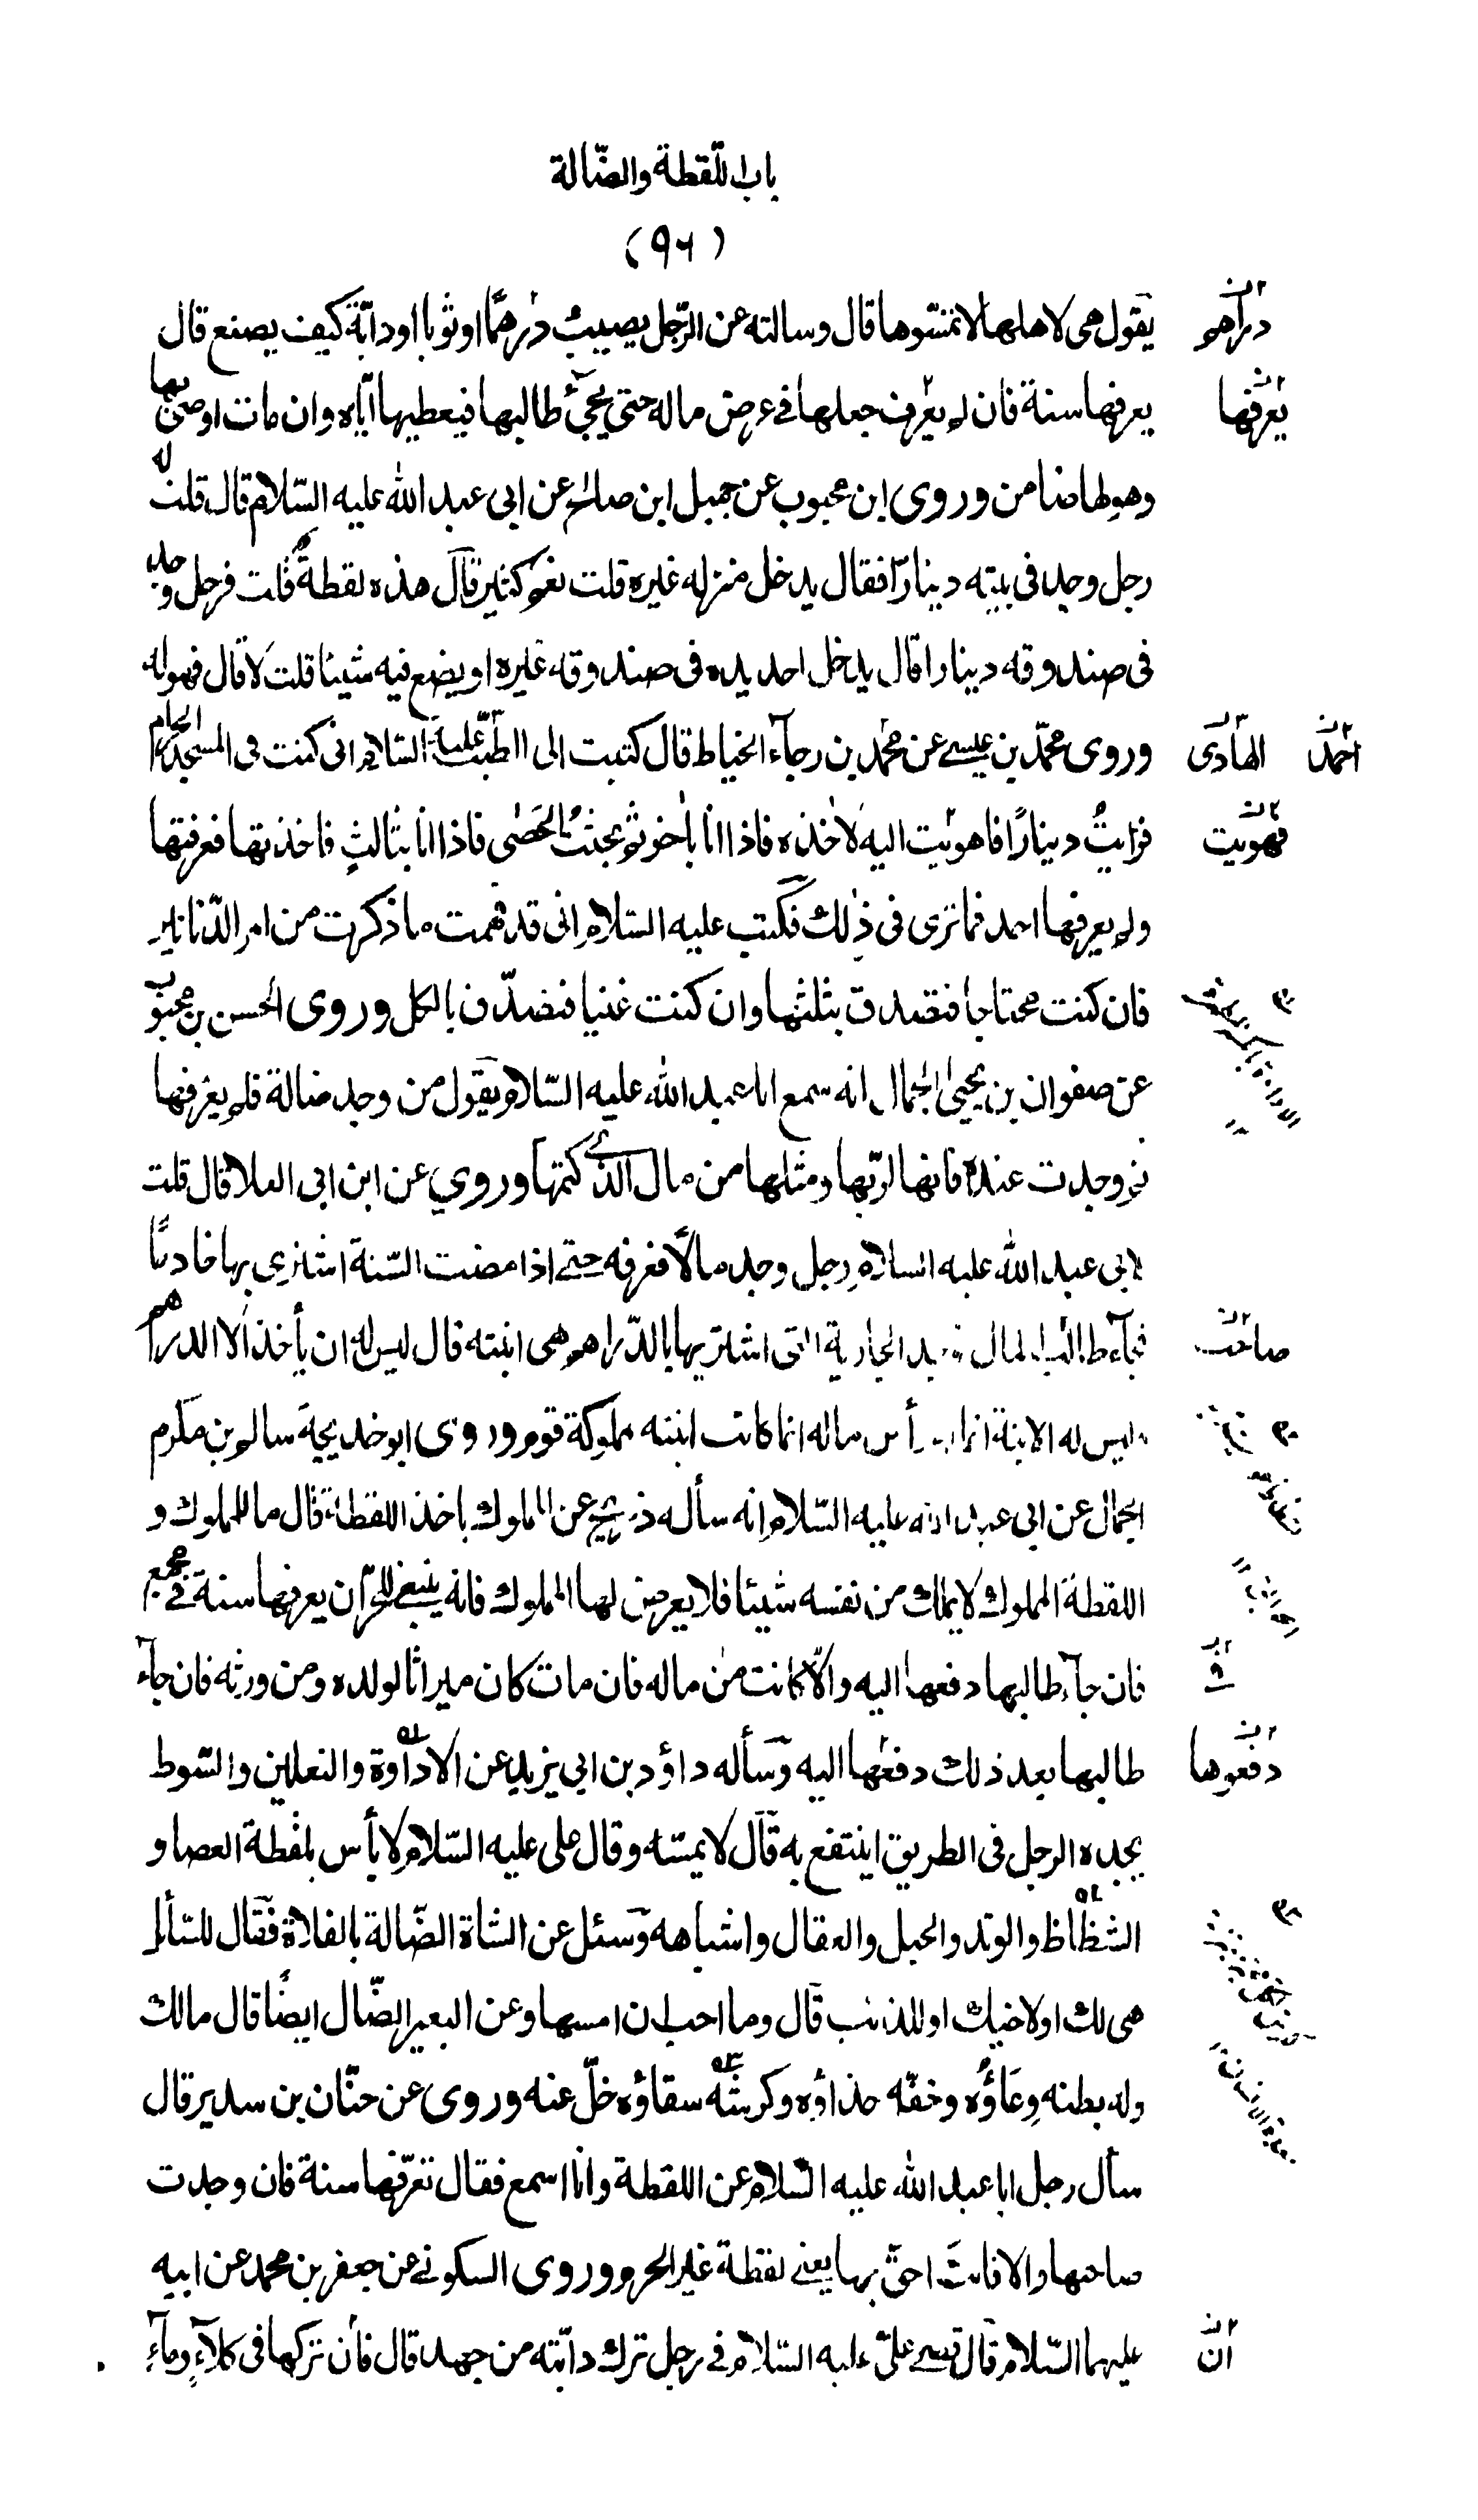 باب اللّقطة والضّالة
(٩٦)
يقول هي لاهلها لا تمسّوها قال وسالته عن الرّجل يصيب درهمًا او ثوبا او دابّة كيف يصنع قال
يعرفها سنة فان لم يعرف جعلها في عرض ماله حتى يجئ طالبها فيعطيها ايّاه وان مات اوصى بها
وهو لها ضامن وروى ابن محبوب عن جميل ابن صالح عن ابى عبد الله عليه السّلام قال قلت له
رجل وجد فى بيته دينارًا فقال يدخل منزله غيره قلت نعم كثير قال هذه لقطة قلت فرجل وجد
فى صندوقه دينارا قال يدخل احد يده فى صندوقه غيره او يضع فيه شيئا قلت لا قال فهو له
وروى محمّد بن عيسى عن محمّد بن رجآء الخياط قال كتبت الى الطّيّب عليه السّلام انى كنت فى المسجد الحرام
فرايتُ دينارًا فاهويت اليه لاخذه فاذا انا باخر ثم بحثت الحصٰى فاذا انا بثالثٍ فاخذتها فعرفتها
ولم يعرفها احد فما ترى فى ذٰلك فكتب عليه السّلام انى قد فهمت ما ذكرت من امر الدّنانير
فان كنت محتاجا فتصدق بثلثها وان كنت غنيا فتصدّق بالكل وروى الحسن بن محبوب
عن صفوان بن يحيىٰ الجمال انه سمع ابا عبد الله عليه السّلام يقول من وجد ضالة فلم يعرفها
ثم وجدت عنده فانها لربّها ومثلها من مال الّذى كتمها وروي عن ابن ابى العلا قال قلت
لابى عبد الله عليه السلام رجل وجد مالًا فعرفه حتى اذا مضت السّنة اشترى بها خادمًا
فجآء طالب المال فوجد الجارية التى اشتريها بالدّراهم هى ابنته قال ليس له ان يأخذ الا الدراهم
وليس له الابنة انما له رأس ماله انما كانت ابنته مملوكة قوم وروى ابو خديجة سالم بن مكرم
الجمال عن ابى عبد الله عليه السّلام انه سأله ذريح عن المملوك ياخذ اللقطة قال ما للمملوك و
اللقطة المملوك لا يملك من نفسه شيئا فلا يعرض لها المملوك فانه ينبغى للحرّ ان يعرفها سنة فى مجمع
فان جآء طالبها دفعها اليه والّا كانت من ماله فان مات كان ميراثا لولده ومن ورثه فان جآء
طالبها بعد ذلك دفعها اليه وسأله داؤد بن ابى يزيد عن الاداوة والنعلين والسّوط
يجده الرجل فى الطريق اينتفع به قال لا يمسّه وقال على عليه السّلام لا بأس بلقطة العصا و
الشظاظ والوتد والحبل والعقال واشباهه وسئل عن الشاة الضّالة بالفلاة فقال للسّائل
هى لك او لاخيك او للذئب قال وما احب ان امسها وعن البعير الضّال ايضًا قال مالك
وله بطنه وعاؤُه وخفّه حذاؤه وكرشه سقاؤه خلّ عنه وروى عن حنّان بن سدير قال
سأل رجل ابا عبد الله عليه السّلام عن اللقطة وانا اسمع فقال تعرّفها سنة فان وجدت
صاحبها والا فانت احقّ بها يعنى لقطة غير الحرم وروى السكونى عن جعفر بن محمد عن ابيه
عليهما السّلام قال قضى علىّ عليه السّلام فى رجل ترك دابّته من جهد قال فان تركها فى كلاءٍ وماءٍ
دراهم
يعرّفها
احمد
الهادى
فهويت
صاحب
ق
دفعوها
ان